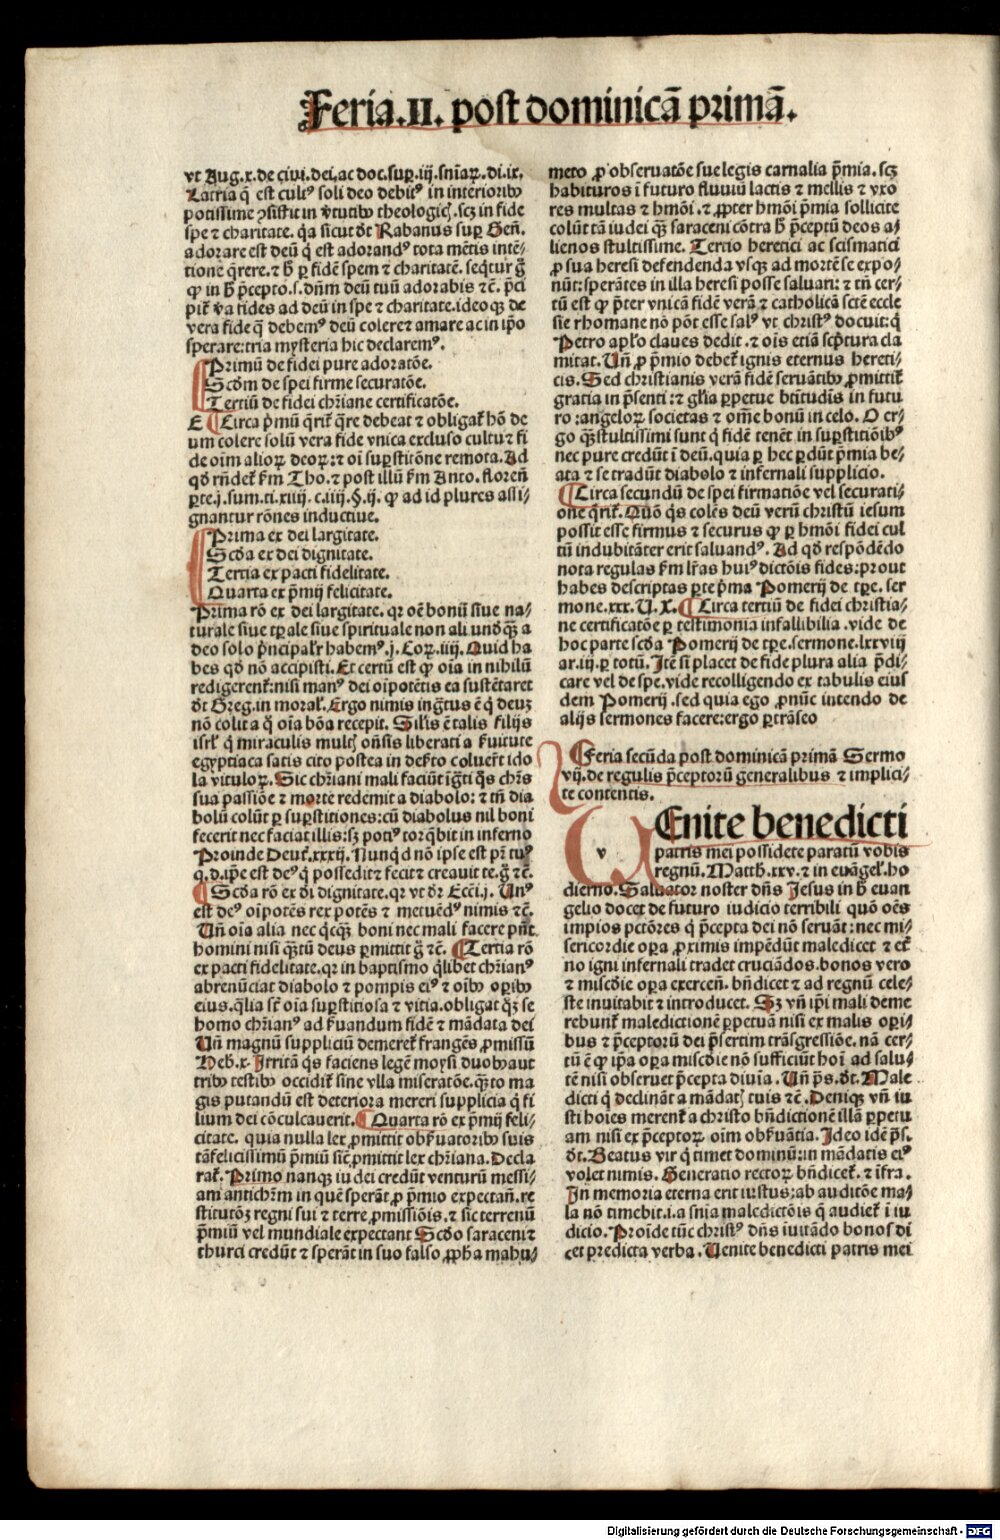 Feria.II. post dominicā primā.
vt Aug.x.de ciui.dei.ac doc.suꝑ.iij.snīaꝝ.di.ix.
Latria q̄ est cultꝰ soli deo debitꝰ in interioribꝰ
potissime ꝯsistit in v̓tutibꝰ theologic̄.scꝫ in fide
spe ⁊ charitate. q̓a sicut dt̄ Rabanus suꝑ Gen̄.
adorare est deū q̓ est adorandꝰ tota mētis intē-
tione q̄rere.⁊ h̄ ꝑ fidē spem ⁊ charitatē. seqt̄ur g̓
ꝙ in h̄ p̄cepto.s.dn̄m deū tuū adorabis ⁊c̄. p̄ci
pit̓ v̓a fides ad deū in spe ⁊ charitate.ideoqꝫ de
vera fide q̄ debemꝰ deū colere ⁊ amare ac in ip̄o
sperare:tria mysteria hic declaremꝰ.
Primū de fidei pure adoratōe.
Scd̄m de spei firme securatōe.
Tertiū de fidei chr̄iane certificatōe.
¶ Circa p̄mū q̄rit̓ q̄re debeat ⁊ obligat̓ hō de
um colere solū vera fide vnica excluso cultu ⁊ fi
de oīm alioꝝ deoꝝ:⁊ oī suꝑstitōne remota. Ad
qd̓ rn̄det̓ ẜm Tho.⁊ post illū ẜm Anto. floren̄
ꝑte.j.sum.ti.xiiij.c.iiij.§.ij. ꝙ ad id plures assi-
gnantur rōnes inductiue.
Prima ex dei largitate.
Scd̄a ex dei dignitate.
Tertia ex pacti fidelitate.
Quarta ex p̄mij felicitate.
Prima rō ex dei largitate. qr oē bonū siue na-
turale siue tꝑale siue spirituale non ali vndqꝫ a
deo solo p̄ncipalr̄ habemꝰ.j.Coꝝ.iiij. Quid ha
bes qd̓ nō accipisti. Et certū est ꝙ oīa in nihilū
redigerent̓:nisi manꝰ dei oīpotētis ea sustētaret
dt̄ Greg.in moral̓. Ergo nimis ingrtꝰ ē q̓ deuꝫ
nō colit a q̓ oīa bōa recepit. Sil̓is ē talis filijs
isrl̓ q̓ miraculis multꝭ on̄sis liberati a ẜuitute
egyptiaca satis cito postea in deẜto coluer̄t ido
la vituloꝝ. Sic chr̄iani mali faciūt ig̓ti q̓s chr̄s
sua passiōe ⁊ morte redemit a diabolo: ⁊ tn̄ dia
bolū colūt ꝑ suꝑstitiones:cū diabolus nil boni
fecerit nec faciat illis:sꝫ potiꝰ torq̄bit in inferno
Proinde Deut̓.xxxij. Nunqd̓ nō ipse est pr̄ tuꝰ
q.d.ip̄e est deꝰ q̓ possedit ⁊ fecit ⁊ creauit te.g̓ ⁊c̄.
¶ Scd̄a rō ex di dignitate. qr vt dr̄ Ecc̄i.j. Vnꝰ
est deꝰ oīpotēs rex potēs ⁊ metuēdꝰ nimis ⁊c̄.
Vn̄ oīa alia nec q̄cqꝫ boni nec mali facere pn̄t
homini nisi q̄tū deus ꝑmittit g̓ ⁊c̄. ¶ Tertia rō
ex pacti fidelitate.qr in baptismo q̓libet chr̄ianꝰ
abrenūciat diabolo ⁊ pompis eiꝰ ⁊ oībꝰ oꝑibꝰ
eius.q̄lia st̄ oīa suꝑstitiosa ⁊ vitia.obligat qꝫ se
homo chr̄ianꝰ ad ẜuandum fidē ⁊ mādata dei
Vn̄ magnū suppliciū demeret̓ frangēs ꝓmissū
Heb.x. Irritā q̓s faciens legē moysi duobꝰ aut
tribꝰ testibꝰ occidit̓ sine vlla miseratōe.qꝫto ma
gis putandū est deteriora mereri supplicia q̓ fi
lium dei cōculcauerit. ¶ Quarta rō ex p̄mij feli-
citate. quia nulla lex ꝓmittit obẜuatoribꝰ suis
tā felicissimū p̄miū sic̄ ꝓmittit lex chr̄iana. Decla
rat̓. Primo nanqꝫ iudei credūt venturū messi-
am antichr̄m in quē sperāt ꝓ p̄mio expectan̄.re
stitutōꝫ regni sui ⁊ terre ꝓmissiōis.⁊ sic terrenū
p̄miū vel mundiale expectant Scd̄o saraceni ⁊
thurci credūt ⁊ sperāt in suo falso ꝓph̄a mahu-
meto ꝓ obseruatōe sue legis carnalia p̄mia.scꝫ
habituros ī futuro fluuiū lactis ⁊ mellis ⁊ vxo
res multas ⁊ hmōi.⁊ ꝓpter hmōi p̄mia sollicite
colūt tā iudei qꝫ saraceni cōtra h̄ p̄ceptū deos a-
lienos stultissime. Tertio heretici ac scismatici
ꝓ sua heresi defendenda vsqꝫ ad mortē se expo-
nūt:sperātes in illa heresi posse saluari: ⁊ tn̄ cer-
tū est ꝙ p̄ter vnicā fidē verā ⁊ catholicā sct̄e eccle
sie rhomane nō pōt esse salꝰ vt christꝰ docuit:q̓
Petro apl̓o claues dedit.⁊ oīs etiā sc̓ptura cla
mitat. Vn̄ ꝓ p̄mio debet̓ ignis eternus hereti-
cis. Sed christianis verā fidē seruātibꝰ ꝓmittit̓
gratia in p̄senti:⁊ gl̓ia ꝑpetue bt̄itudīs in futu
ro:angeloꝝ societas ⁊ om̄e bonū in celo. O er-
go qꝫ stultissimi sunt q̓ fidē tenēt in suꝑstitiōibꝰ
nec pure credūt ī deū.quia ꝑ hec ꝑdūt p̄mia be-
ata ⁊ se tradūt diabolo ⁊ infernali supplicio.
¶ Circa secundū de spei firmatiōe vel securati-
one q̄rit̓. Quō q̓s colēs deū verū christū iesum
possit esse firmus ⁊ securus ꝙ ꝑ hmōi fidei cul
tū indubitāter erit saluandꝰ. Ad qd̓ respōdēdo
nota regulas ẜm lr̄as huiꝰ dictōis fides:prout
habes descriptas ꝑte p̄ma Pomerij de tꝑe.ser
mone.xxx.V.X. ¶ Circa tertiū de fidei christia-
ne certificatōe ꝑ testimonia infallibilia.vide de
hoc parte scd̄a Pomerij de tꝑe.sermone.lxxviij
ar.iij.ꝑ totū. Itē si placet de fide plura alia p̄di-
care vel de spe.vide recolligendo ex tabulis eius
dem Pomerij.sed quia ego ꝓnūc intendo de
alijs sermones facere:ergo ꝑtrāseo
¶ Feria secūda post dominicā primā Sermo
vij.de regulis p̄ceptorū generalibus ⁊ implici-
te contentis.
VEnite benedicti
patris mei possidete paratū vobis
regnū. Matth.xxv.⁊ in euāgel̓.ho
dierno. Saluator noster dn̄s Jesus in h̄ euan
gelio docet de futuro iudicio terribili quō oēs
impios pctōres q̓ p̄cepta dei nō seruāt:nec mi-
sericordie oꝑa ꝓximis impēdūt maledicet ⁊ et̓
no igni infernali tradet cruciādos.bonos vero
⁊ misc̄die oꝑa exercen̄. bn̄dicet ⁊ ad regnū cele-
ste inuitabit ⁊ introducet. Sꝫ vn̄ ip̄i mali deme
rebunt̓ maledictionē ꝑpetuā nisi ex malis oꝑi-
bus ⁊ p̄ceptorū dei p̄sertim trāsgressiōe. nā cer-
tū ē ꝙ ip̄a oꝑa misc̄die nō sufficiūt hoī ad salu-
tē nisi obseruet p̄cepta diuīa. Vn̄ p̄s.dt̄. Male
dicti q̓ declināt a mādatꝭ tuis ⁊c̄. Deniqꝫ vn̄ iu
sti hoīes merent̓ a christo bn̄dictionē illā ꝑpetu
am nisi ex p̄ceptoꝝ oīm obẜuātia. Ideo idē p̄s.
dt̄. Beatus vir q̓ timet dominū:in mādatis eiꝰ
volet nimis. Generatio rectoꝝ bn̄dicet̓. ⁊ īfra.
In memoria eterna erit iustus:ab auditōe ma-
la nō timebit.i.a snīa maledictōis q̄ audiet̓ ī iu
dicio. Proīde tūc christꝰ dn̄s iuitādo bonos di
cet predicta verba. Venite benedicti patris mei
Digitalisierung gefördert durch die Deutsche Forschungsgemeinschaft - DFG